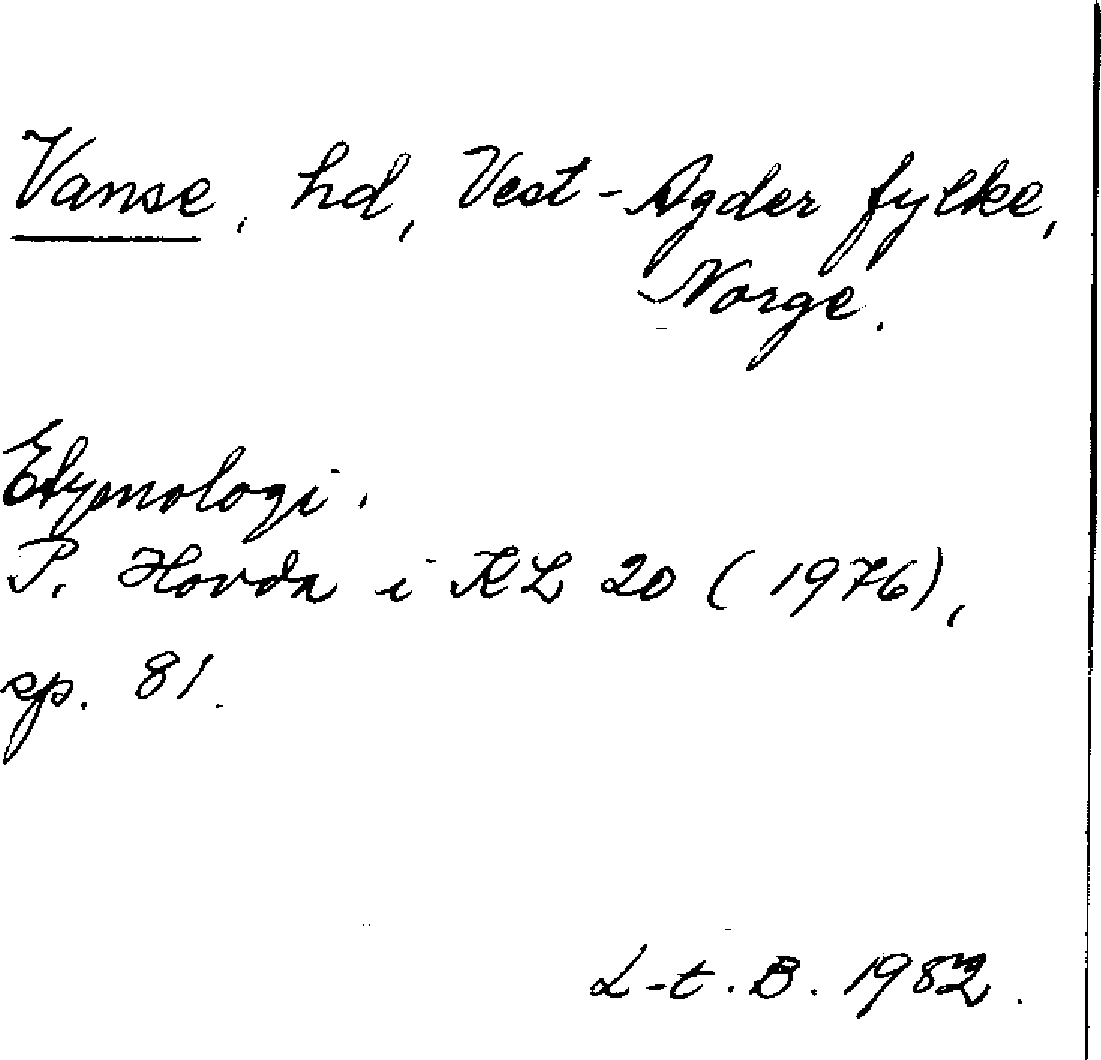 Vanse, hd, Vest-Agder fylke,
Norge.
Etymologi.
P. Hovda i KL 20 (1976),
sp. 81.
L-t. B. 1982.